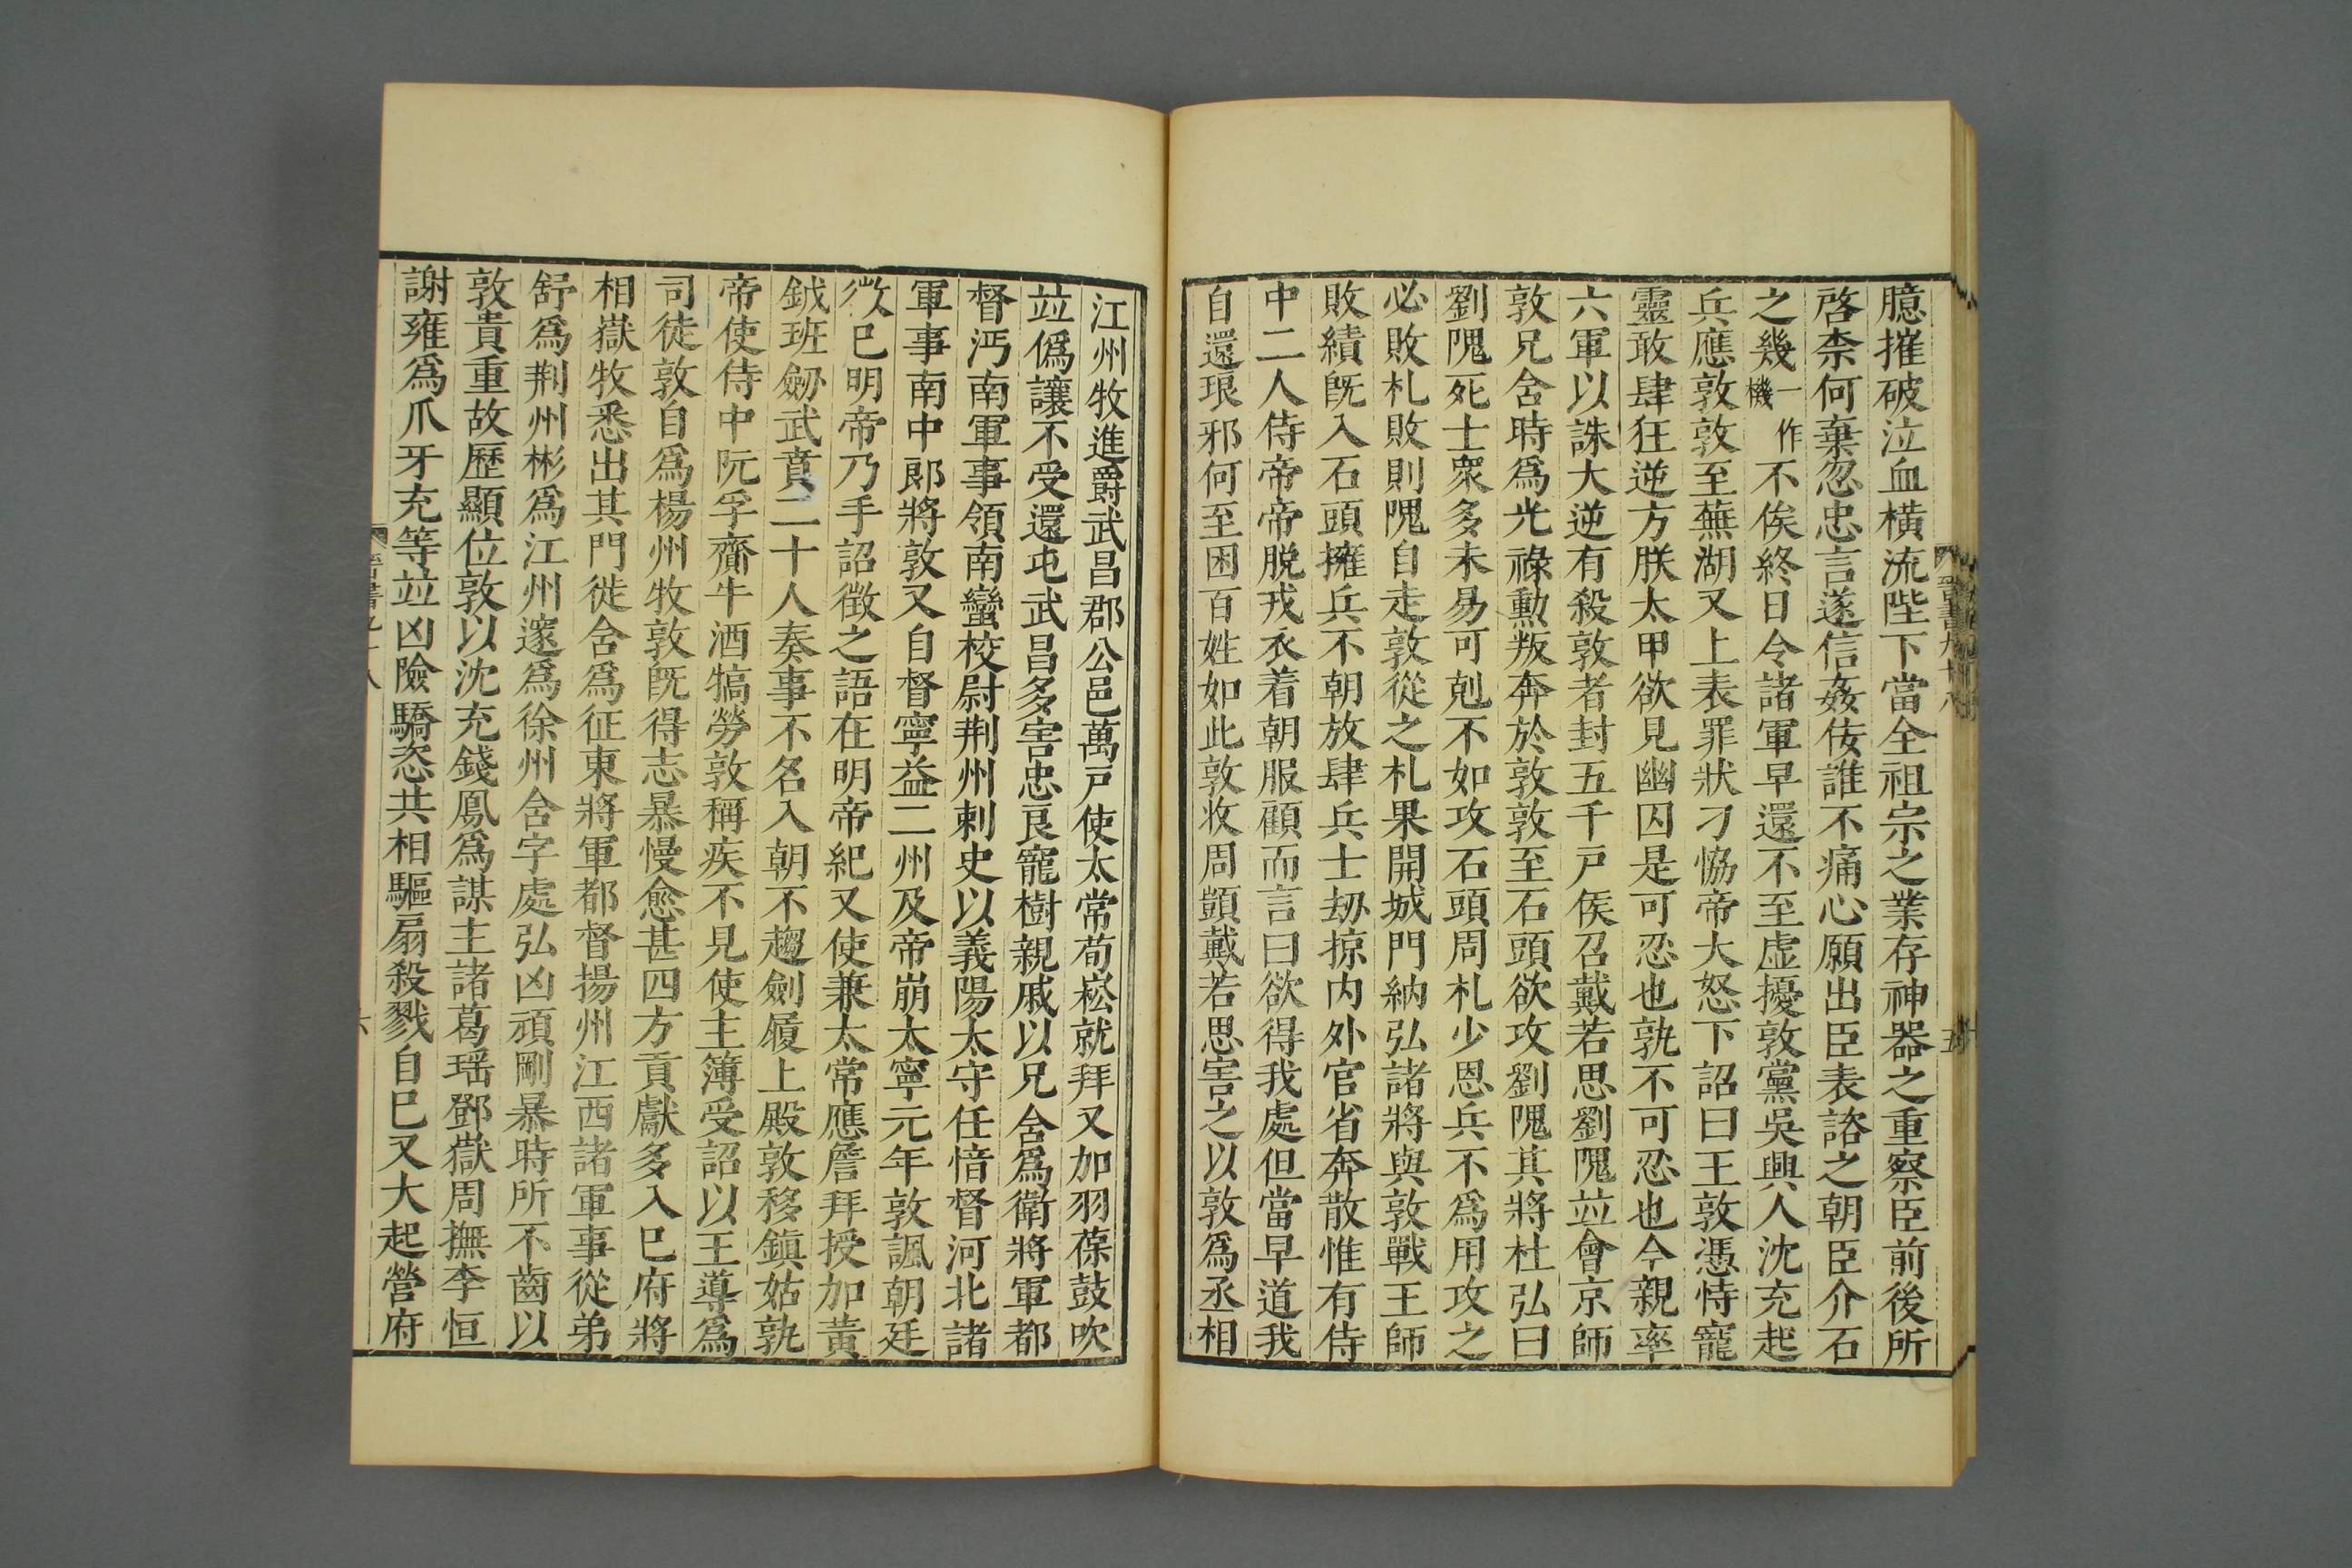 臆摧破泣血橫流陛下當全祖宗之業存神器之重察臣前後所
啓柰何棄忽忠言遂信姦佞誰不痛心願出臣表諮之朝臣介石
之幾一作機不俟終日令諸軍早還不至虛擾敦黨吳興人沈充起
兵應敦敦至蕪湖又上表罪狀刁協帝大怒下詔曰王敦憑恃寵
靈敢肆狂逆方朕太甲欲見幽囚是可忍也孰不可忍也今親率
六軍以誅大逆有殺敦者封五千戸侯召戴若思劉隗並會京師
敦兄含時爲光祿勳叛奔於敦敦至石頭欲攻劉隗其將杜弘曰
劉隗死士衆多未易可剋不如攻石頭周札少恩兵不爲用攻之
必敗札敗則隗自走敦從之札果開城門納弘諸將與敦戰王師
敗績旣入石頭擁兵不朝放肆兵士刼掠内外官省奔散惟有侍
中二人侍帝帝脫戎衣着朝服顧而言曰欲得我處但當早道我
自還琅邪何至困百姓如此敦收周顗戴若思害之以敦爲丞相
江州牧進爵武昌郡公邑萬戸使太常荀崧就拜又加羽葆鼓吹
並僞讓不受還屯武昌多害忠良寵樹親戚以兄含爲衛將軍都
督沔南軍事領南蠻校尉荆州刺史以義陽太守任愔督河北諸
軍事南中郎將敦又自督寧益二州及帝崩太寧元年敦諷朝廷
徵已明帝乃手詔徵之語在明帝紀又使兼太常應詹拜授加黃
鉞班劒武賁二十人奏事不名入朝不趨劍履上殿敦移鎮姑孰
帝使侍中阮孚齎牛酒犒勞敦稱疾不見使主簿受詔以王導爲
司徒敦自爲楊州牧敦旣得志暴慢愈甚四方貢獻多入已府將
相嶽牧悉出其門徙含爲征東將軍都督揚州江西諸軍事從弟
舒爲荆州彬爲江州邃爲徐州含字處弘凶頑剛暴時所不齒以
敦貴重故歷顯位敦以沈充錢鳳爲謀主諸葛瑶鄧嶽周撫李恒
謝雍爲爪牙充等並凶險驕恣共相驅扇殺戮自已又大起營府